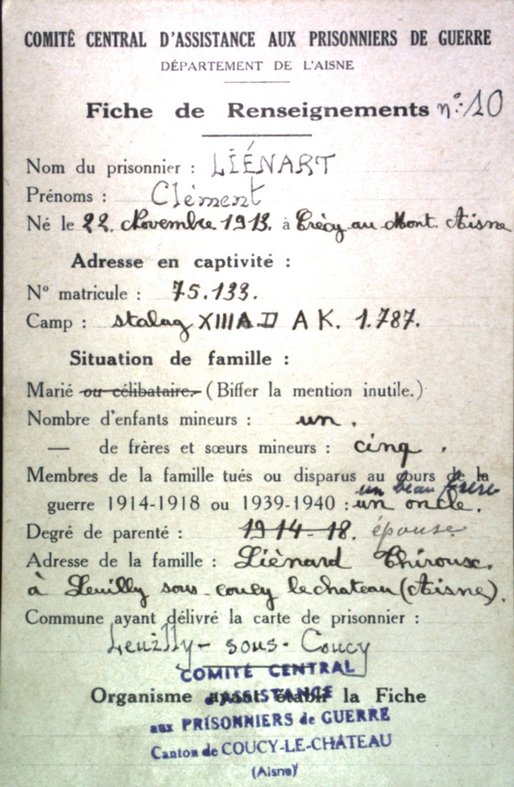 COMITÉ CENTRAL D'ASSISTANCE AUX PRISONNIERS DE GUERRE
DÉPARTEMENT DE L'AISNE
Fiche de Renseignements n°: 10
Nom du prisonnier : LIÉNART
Prénoms : Clément
Né le 22. Novembre 1913. à Crécy au Mont. Aisne
Adresse en captivité :
N° matricule : 75.133.
Camp : stalag XIIIA. D A K. 1.787.
Situation de famille :
Marié ou célibataire. (Biffer la mention inutile.)
Nombre d'enfants mineurs : un.
— de frères et sœurs mineurs : cinq.
Membres de la famille tués ou disparus au cours de la
guerre 1914-1918 ou 1939-1940 : un beau frère un oncle.
Degré de parenté : 1914-18. épouse
Adresse de la famille : Liénard Thiroux.
à Leuilly sous coucy le chateau (Aisne).
Commune ayant délivré la carte de prisonnier :
Leuilly-sous-Coucy
COMITÉ CENTRAL
Organisme ayant établi la Fiche
d'ASSISTANCE
aux PRISONNIERS de GUERRE
Canton de COUCY-LE-CHÂTEAU
(Aisne)